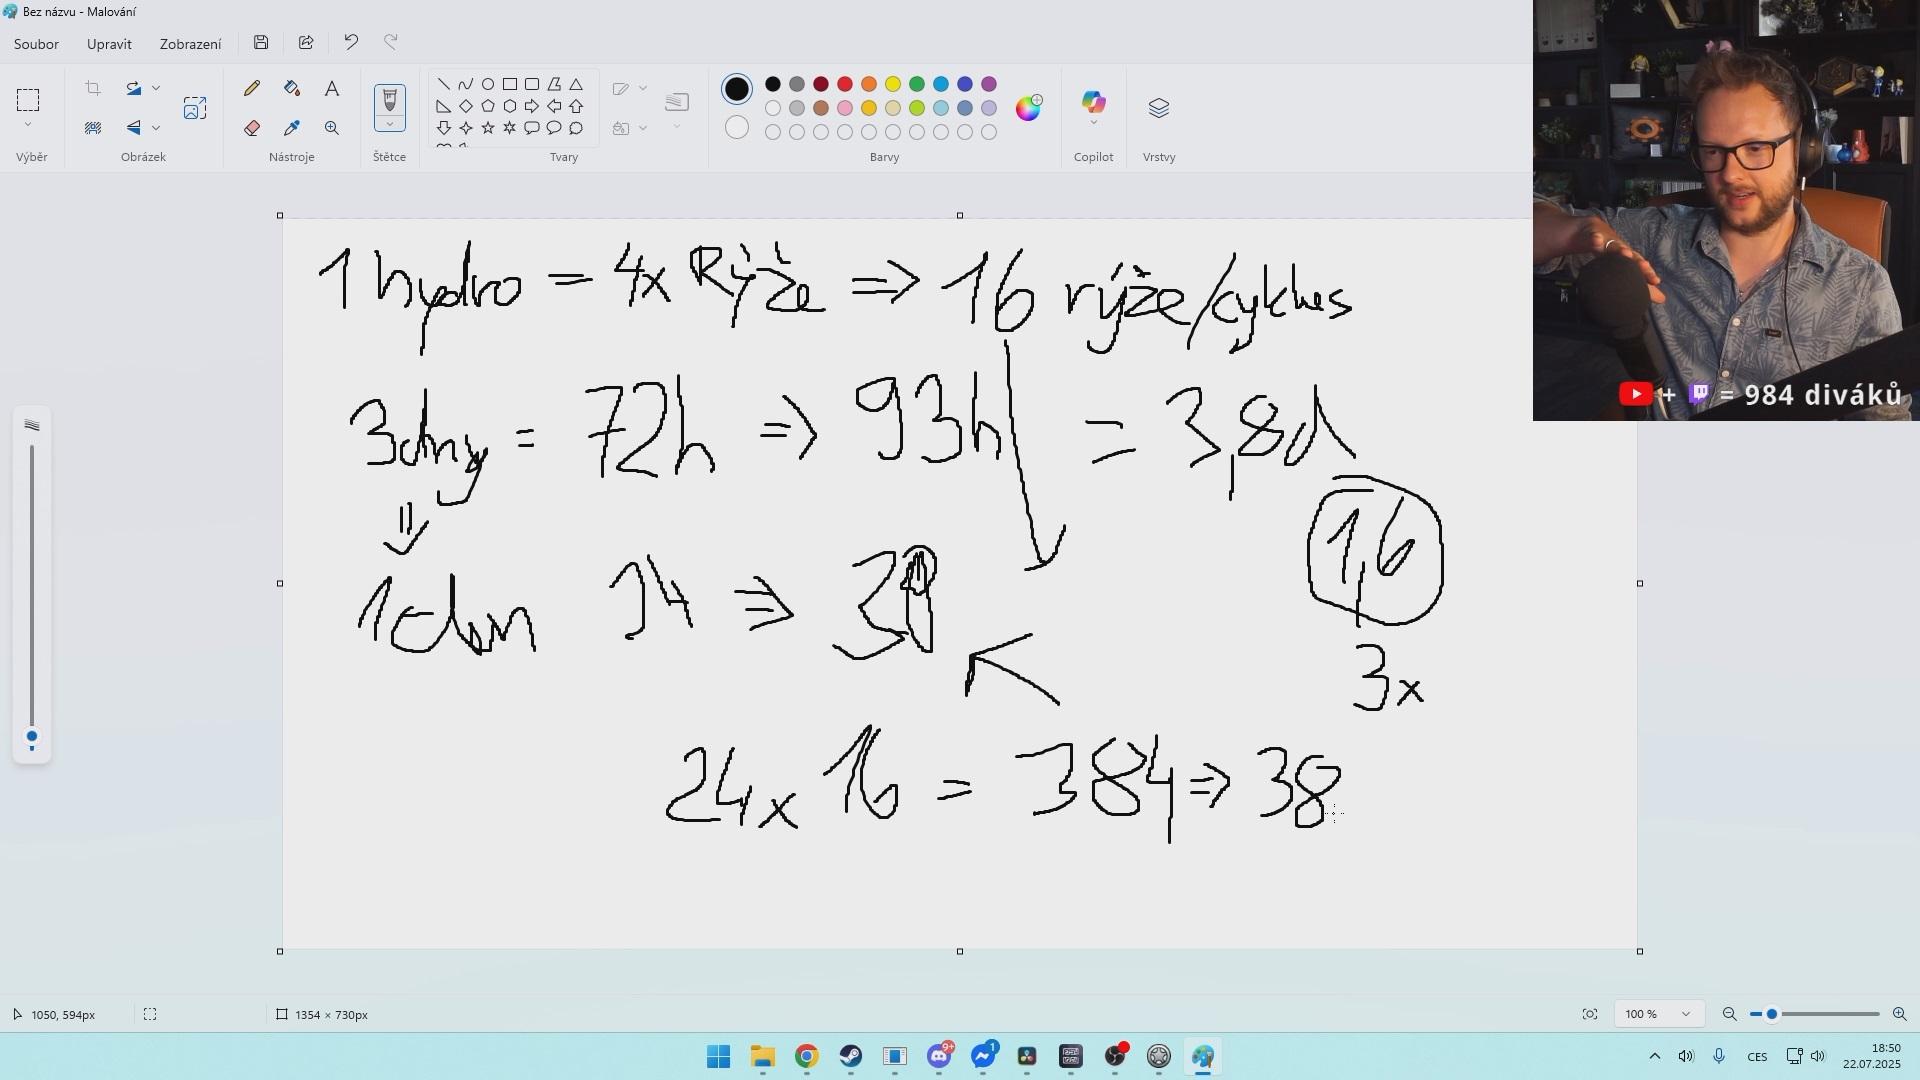 Bez názvu - Malování
Soubor Upravit Zobrazení
Výběr Obrázek Nástroje Štětce Tvary Barvy Copilot Vrstvy
+ = 984 diváků
1 hydro = 4x Rýže => 16 rýže/cyklus
3dny = 72h => 93h = 3,8d
1,6
1den 24 => 31
3x
24x16 = 384 => 38
1050, 594px
1354 × 730px
100 %
9+
1
CES
18:50
22.07.2025